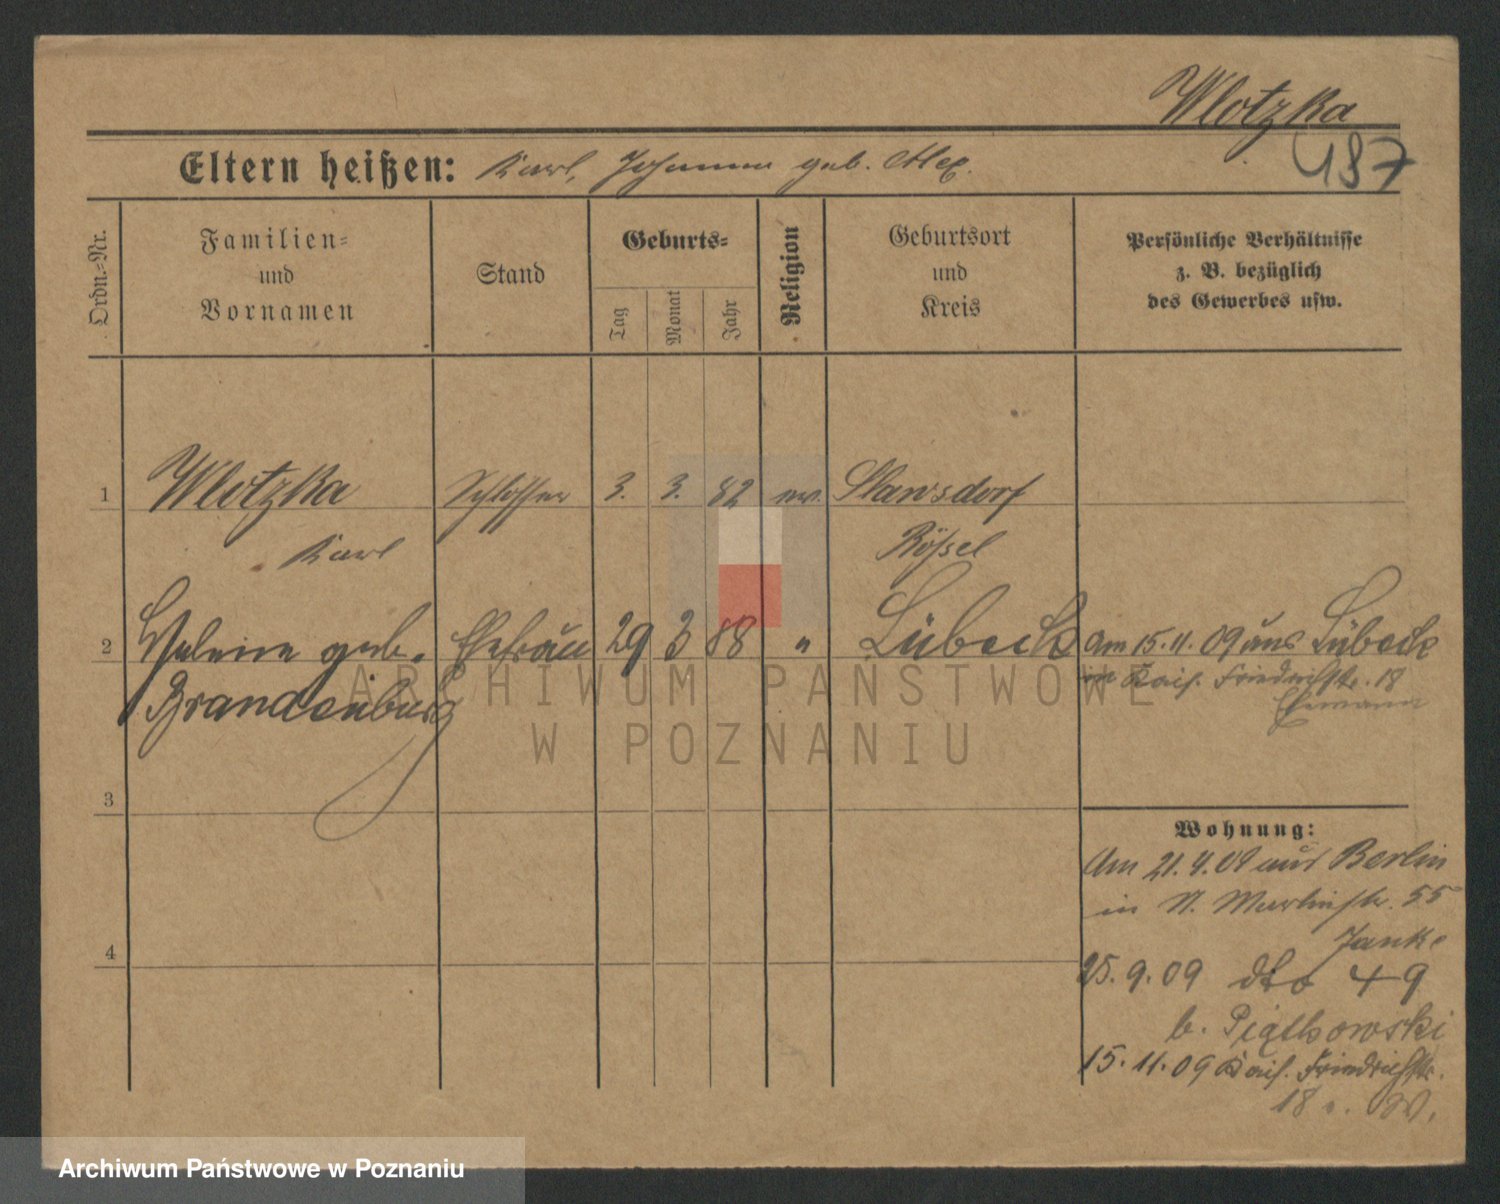 Wlotzka
187
Eltern heißen: Karl, Johanna geb.
Ordn.-Nr.
Familien-
und
Vornamen
Stand
Geburts-
Tag
Monat
Jahr
Religion
Geburtsort
und
Kreis
Persönliche Verhältnisse
z. B. bezüglich
des Gewerbes usw.
1 Wlotzka Schlosser 3. 3. 82 ev.
Karl Rößel
2 geb. Ehefrau 29 3 88 " Lübeck Am 15.11.09 aus Lübeck
Brandenburg in Kais. Friedrichstr. 18
Ehemann
3
4
Wohnung:
Am 21.4.09 aus Berlin
in St. Martinstr. 55
Janke
25.9.09 dto 49
b. Piątkowski
15.11.09 Kais. Friedrichstr.
18
ARCHIWUM PAŃSTWOWE
W POZNANIU
Archiwum Państwowe w Poznaniu